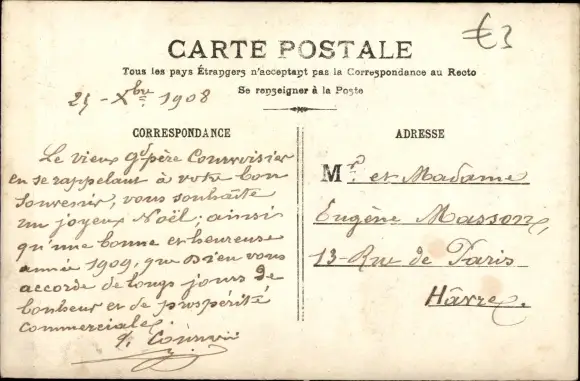 €3
CARTE POSTALE
Tous les pays Étrangers n'acceptant pas la Correspondance au Recto
Se renseigner à la Poste
25-Xbre 1908
CORRESPONDANCE
Le vieux Gd père Courvoisier
en se rappelant à votre bon
souvenir, vous souhaite
un joyeux Noël; ainsi
qu'une bonne et heureuse
année 1909, que Dieu vous
accorde de longs jours de
bonheur et de prospérité
commerciale.
ADRESSE
Mr et Madame
Eugène Masson,
13-Rue de Paris
Hâvre.